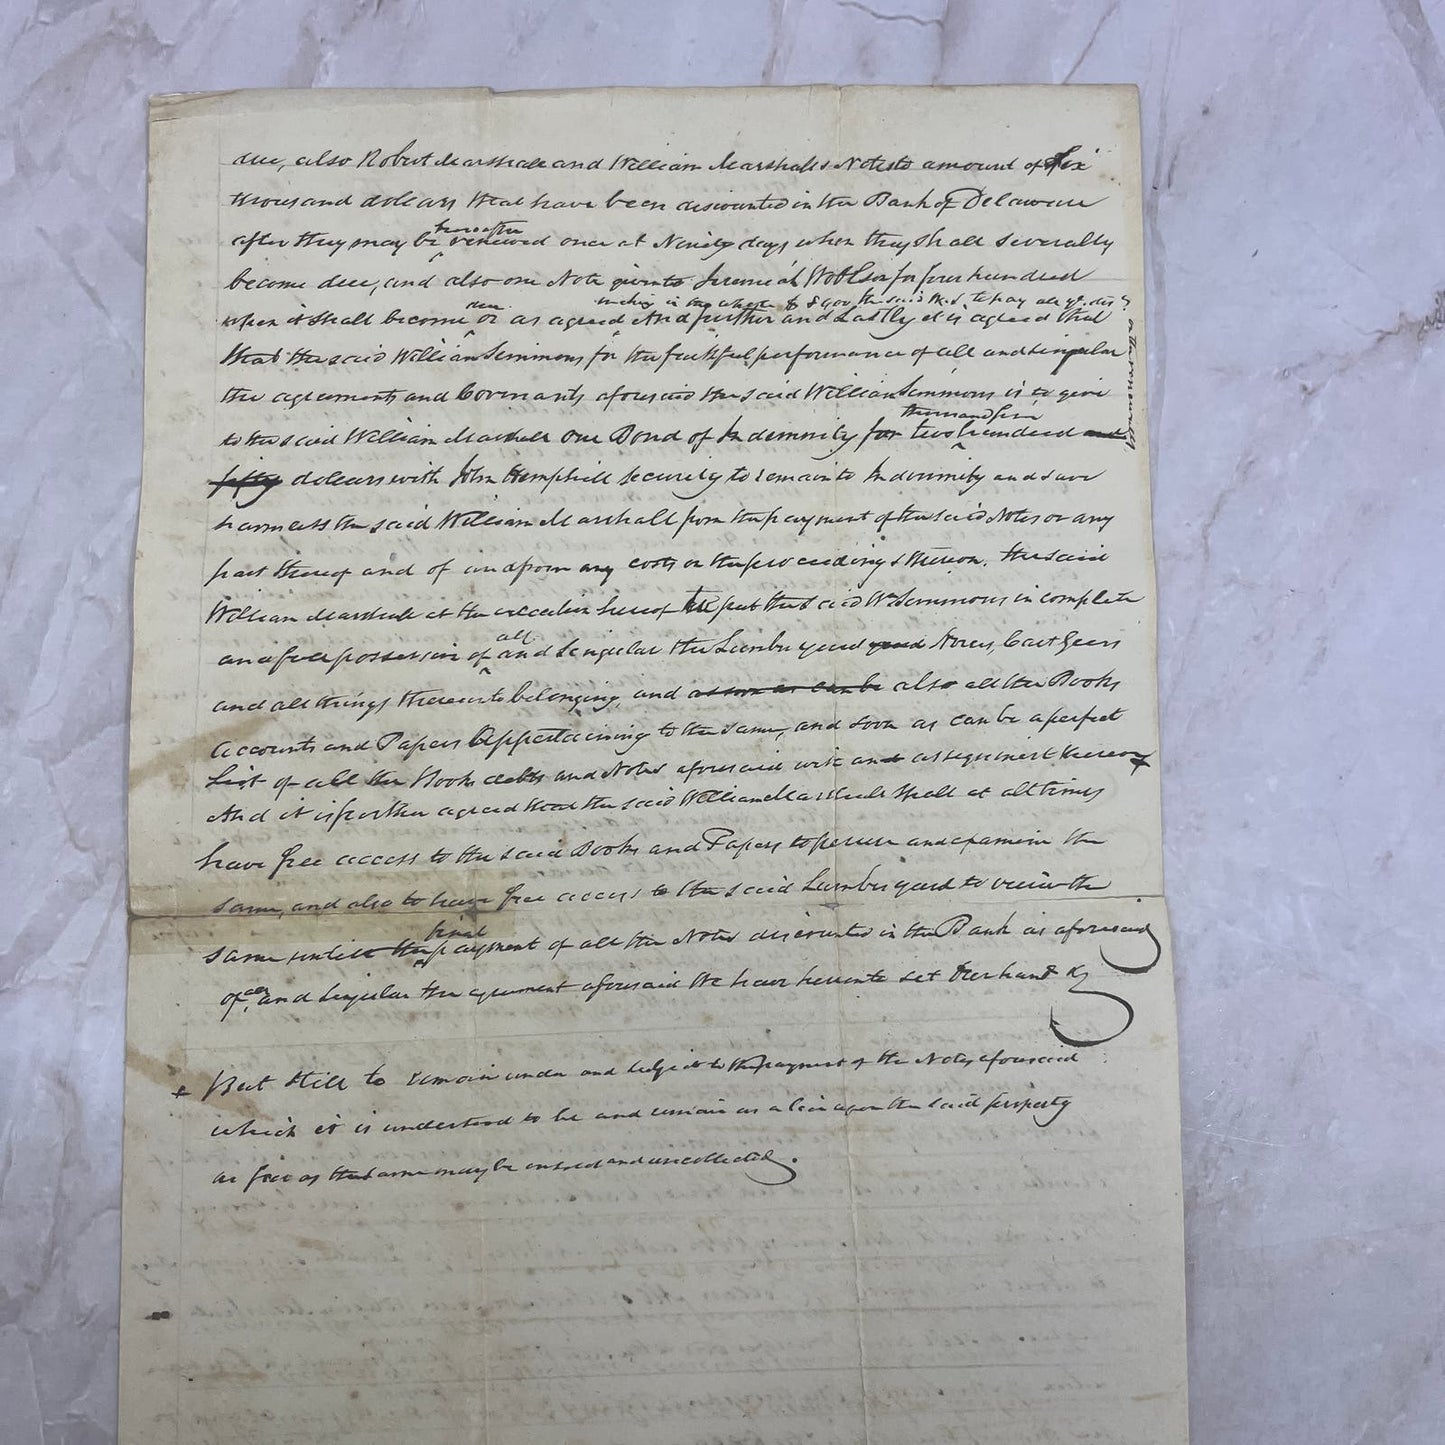 due, also Robert Marshall and William Marshalls Notes to amount of Six
thousand dollars that have been discounted in the Bank of Delaware
hereafter
after they may be renewed once at Ninety days when they shall severally
become due, and also one Note given to Jeremiah for four hundred
due
the said W. S. to pay all
when it shall become or as agreed And further and Lastly it is agreed that
that the said William Simmons for the faithful performance of all and singular
the agreements and Covenants aforesaid the said William Simmons is to give
thousand
to the said William Marshall One Bond of Indemnity for two hundred and
fifty dollars with John Hemphill security to remain to Indemnify and save
harmless the said William Marshall from the payment of the said Notes or any
part thereof and of and from any costs or the proceedings thereon. the said
William Marshall at the execution hereof to put the said Wm Simmons in complete
all
and free possession of and Singular the Lumber yard yard Horses, Cart Gears
and all things thereunto belonging, and as soon as can be also all the Books
accounts and Papers Appertaining to the same, and soon as can be a perfect
List of all the Book debts and Notes aforesaid with an assignment thereon
And it is further agreed that the said William Marshall Shall at all times
have free access to the said Books and Papers to peruse and examine the
same, and also to have free access to the said Lumber yard to view the
final
same untill the payment of all the Notes discounted in the Bank as aforesaid
of all and Singular the agreement aforesaid We have hereunto set Our hand &
+ But still to remain under and subject to the payment of the Notes aforesaid
which it is understood to be and remain as a lien upon the said property
as free as the same may be and uncollected.